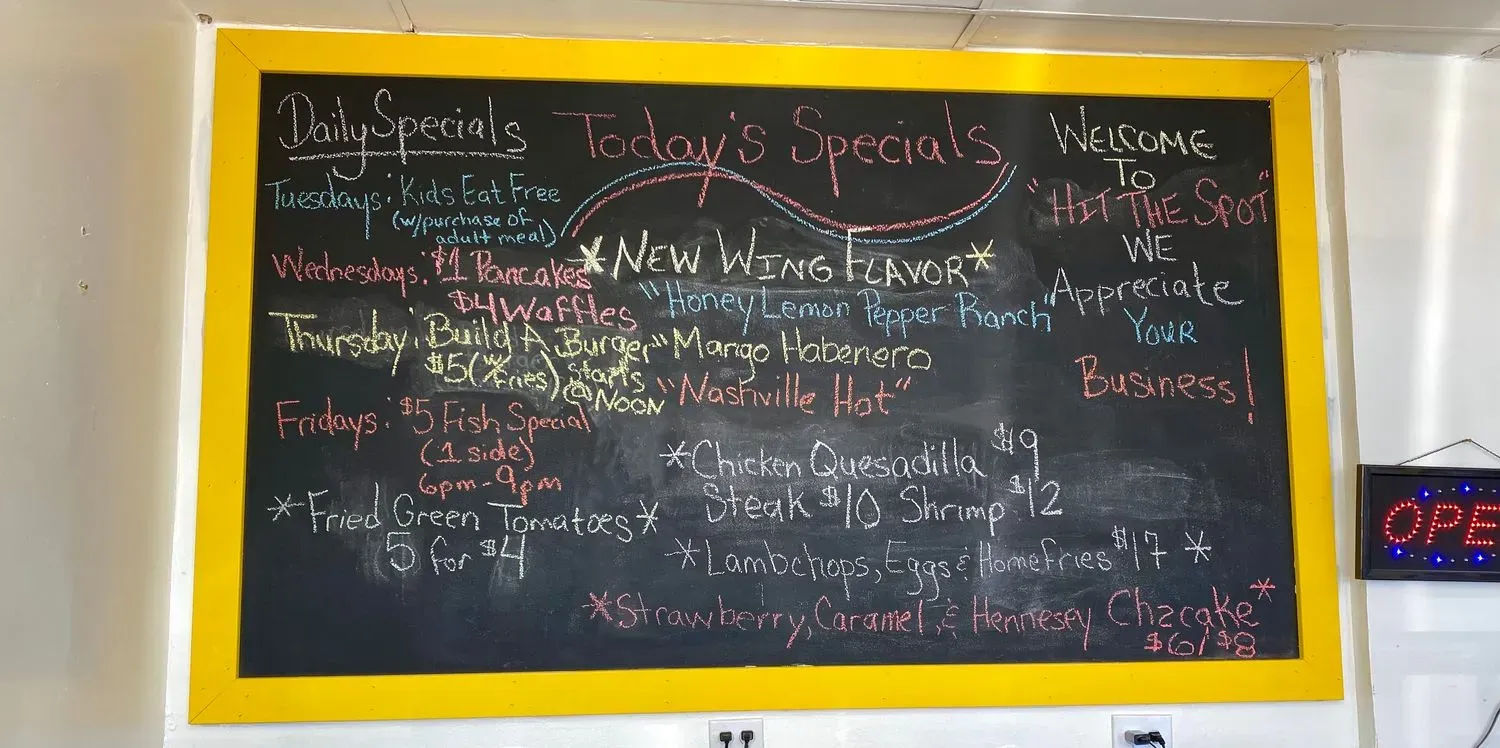 Daily Specials
Tuesdays: Kids Eat Free
(w/purchase of
adult meal)
Wednesdays: $1 Pancakes
$4 Waffles
Thursday: Build A Burger
$5 (w/ fries) starts
@ NOON
Fridays: $5 Fish Special
(1 side)
6pm-9pm
*Fried Green Tomatoes*
5 for $4
Today's Specials
*NEW WING FLAVOR*
"Honey Lemon Pepper Ranch"
"Mango Habenero
"Nashville Hot"
*Chicken Quesadilla $9
Steak $10 Shrimp $12
*Lambchops, Eggs & Homefries $17 *
*Strawberry, Caramel, & Hennesey Chzcake*
$6/$8
WELCOME
To
"HIT THE SPOT"
WE
Appreciate
YOUR
Business!
OPE